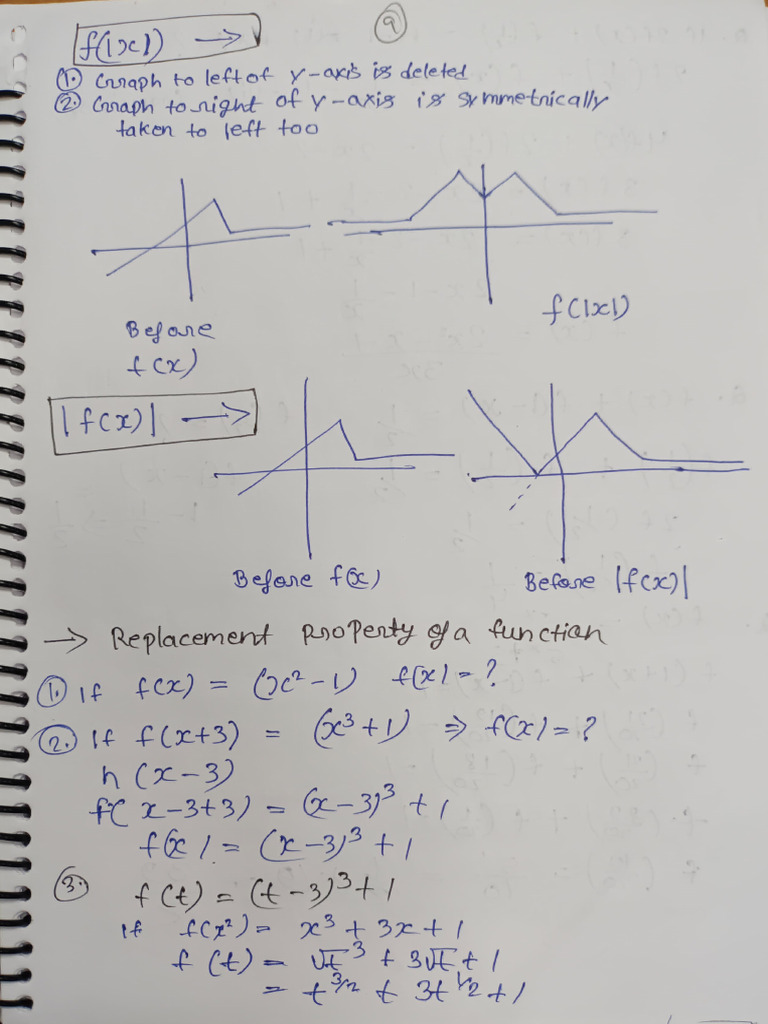 9
f(|x|) →
1. Graph to left of y-axis is deleted
2. Graph to right of y-axis is symmetrically
taken to left too
f(|x|)
Before
f(x)
|f(x)| →
Before f(x)
Before |f(x)|
→ Replacement property of a function
1. If f(x) = (x² - 1) f(x) = ?
2. If f(x+3) = (x³ + 1) ⇒ f(x) = ?
h (x - 3)
f( x - 3 + 3) = (x - 3)³ + 1
f(x) = (x - 3)³ + 1
3. f(t) = (t - 3)³ + 1
If f(x²) = x³ + 3x + 1
f(t) = √t³ + 3√t + 1
= t^3/2 + 3t^1/2 + 1